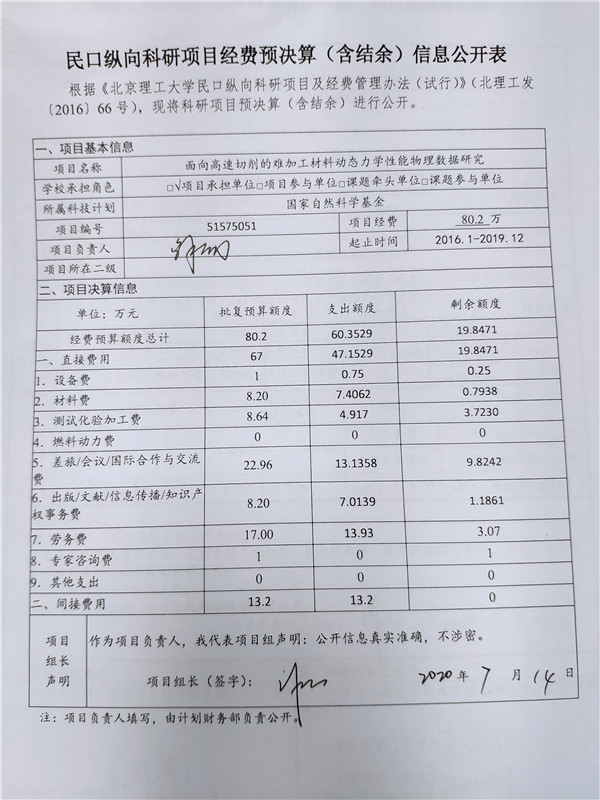 民口纵向科研项目经费预决算（含结余）信息公开表
根据《北京理工大学民口纵向科研项目及经费管理办法（试行）》（北理工发
〔2016〕66号），现将科研项目预决算（含结余）进行公开。
一、项目基本信息
项目名称 面向高速切削的难加工材料动态力学性能物理数据研究
学校承担角色 □√项目承担单位□项目参与单位□课题牵头单位□课题参与单位
所属科技计划 国家自然科学基金
项目编号 51575051 项目经费 80.2 万
项目负责人 起止时间 2016.1-2019.12
项目所在二级
二、项目决算信息
单位：万元 批复预算额度 支出额度 剩余额度
经费预算额度总计 80.2 60.3529 19.8471
一、直接费用 67 47.1529 19.8471
1．设备费 1 0.75 0.25
2．材料费 8.20 7.4062 0.7938
3．测试化验加工费 8.64 4.917 3.7230
4．燃料动力费 0 0 0
5．差旅/会议/国际合作与交流
费 22.96 13.1358 9.8242
6．出版/文献/信息传播/知识产
权事务费 8.20 7.0139 1.1861
7．劳务费 17.00 13.93 3.07
8．专家咨询费 1 0 1
9．其他支出 0 0 0
二、间接费用 13.2 13.2 0
项目
组长
声明
作为项目负责人，我代表项目组声明：公开信息真实准确，不涉密。
项目组长（签字）： 2020年 7 月 14 日
注：项目负责人填写，由计划财务部负责公开。